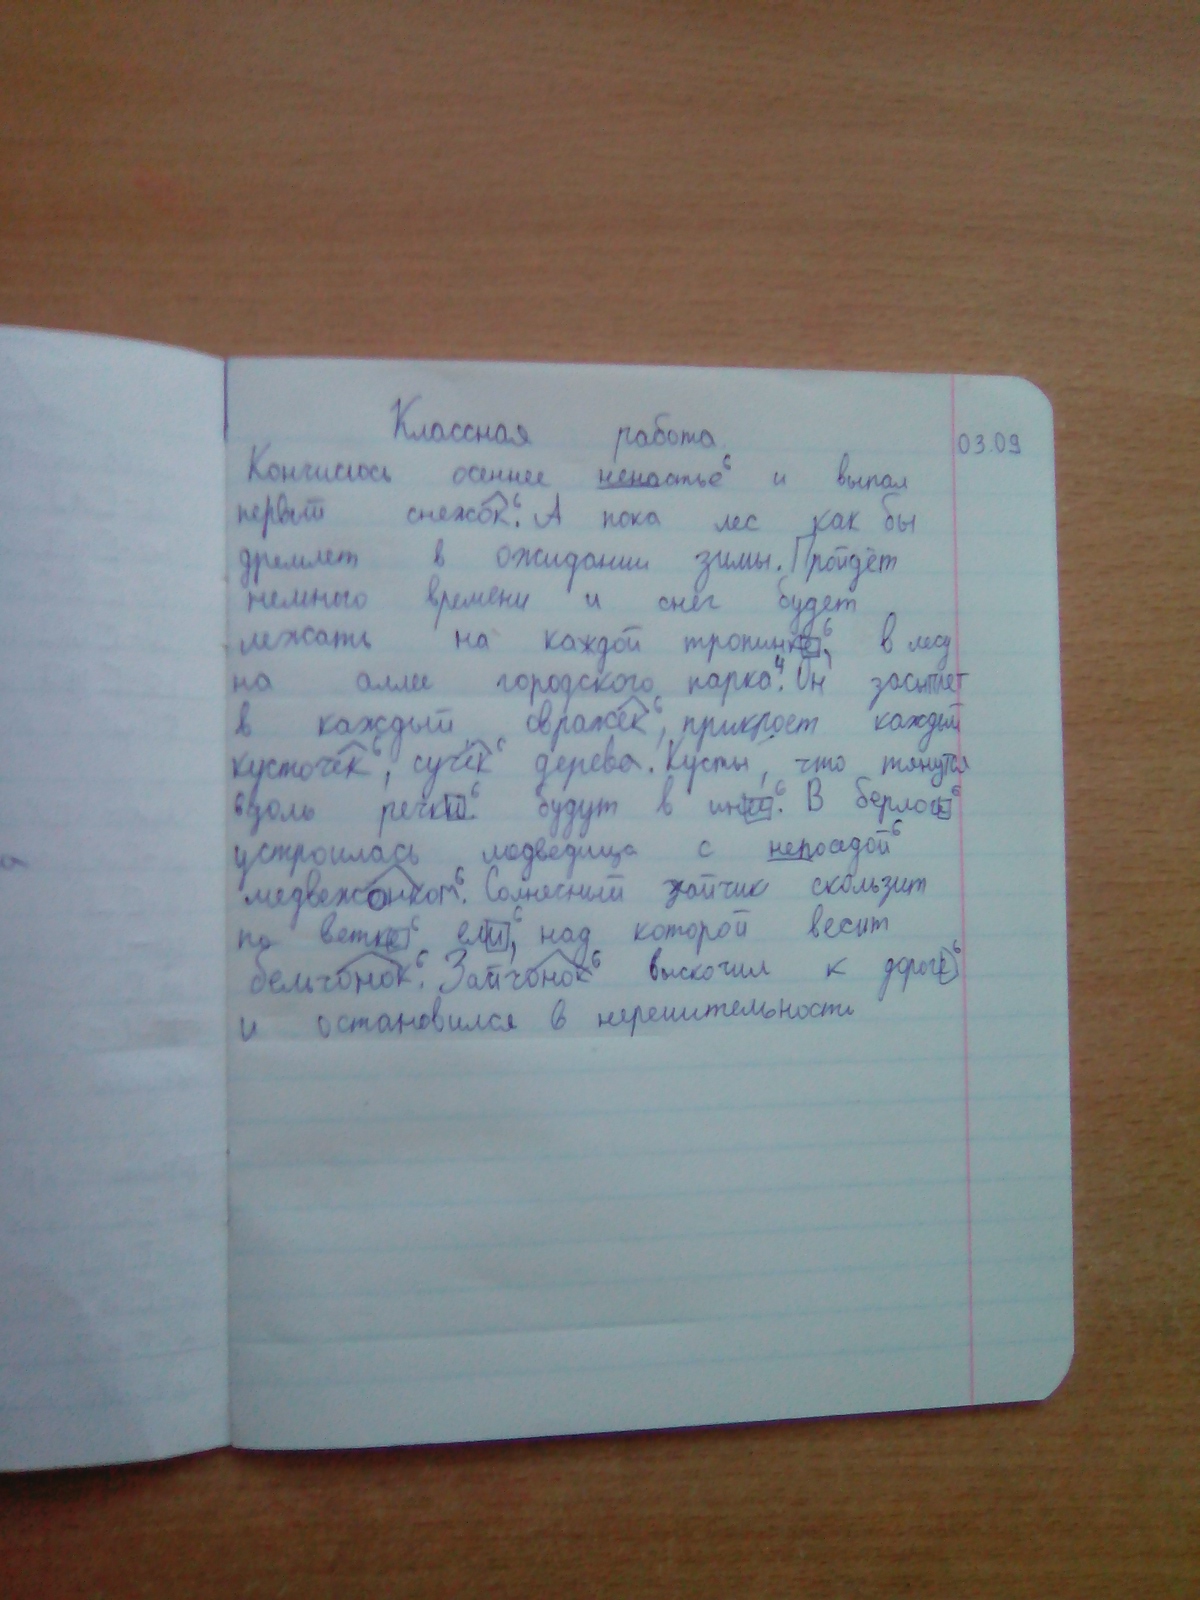 Классная работа
03.09
Кончилось осеннее ненастье⁶ и выпал
первый снежок⁶. А пока лес как бы
дремлет в ожидании зимы. Пройдёт
немного времени и снег будет
лежать на каждой тропинке⁶, в лесу
на аллее городского парка⁴. Он засыпет
в каждый овражек⁶, прикроет каждый
кусточек⁶, сучек⁶ дерева. Кусты, что тянутся
вдоль речки⁶. будут в инии⁶. В берлоге⁶
устроилась медведица с непоседой⁶
медвежонком⁶. Солнесный зайчик скользит
по ветке⁶ ели⁶, над которой весит
бельчонок⁶. Зайчонок⁶ выскочил к дороге⁶
и остановился в нерешительности